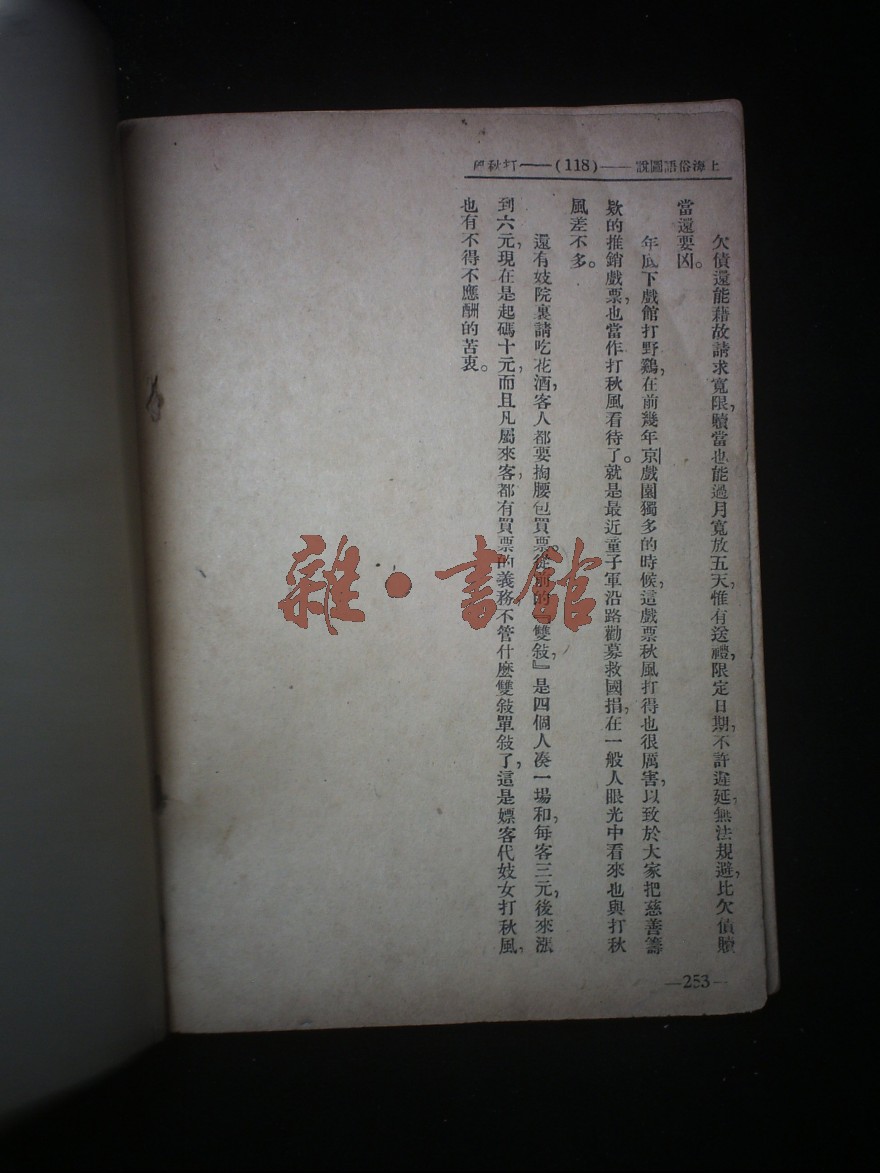 上海俗語圖說——(118)——打秋風
欠債還能藉故請求寬限，贖當也能過月寬放五天，惟有送禮，限定日期，不許遲延，無法規避，比欠債贖
當還要凶。
年底下戲館打野鷄，在前幾年京戲園獨多的時候，這戲票秋風打得也很厲害，以致於大家把慈善籌
欵的推銷戲票，也當作打秋風看待了。就是最近童子軍沿路勸募救國捐，在一般人眼光中看來也與打秋
風差不多。
還有妓院裏請吃花酒，客人都要掏腰包買票。從前的『雙敍，』是四個人凑一場和，每客三元，後來漲
到六元，現在是起碼十元，而且凡屬來客，都有買票的義務不管什麽雙敍單敍了，這是嫖客代妓女打秋風，
也有不得不應酬的苦衷。
—253—
雜·書館